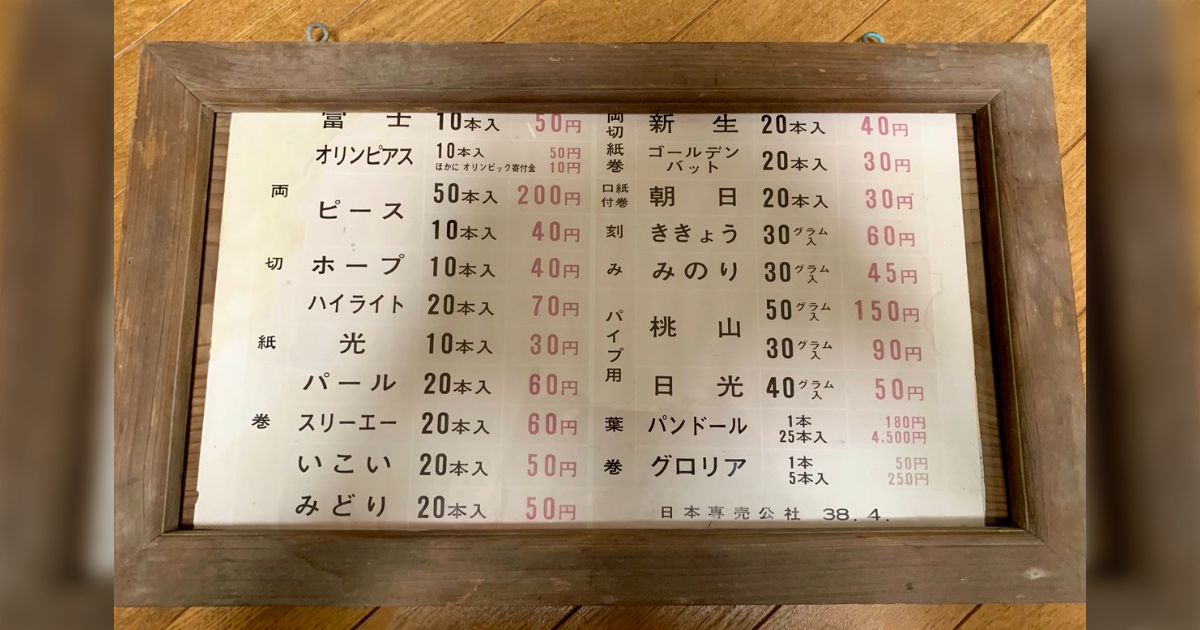 両切紙巻
富士 10本入 50円
オリンピアス 10本入 50円
ほかに オリンピック寄付金 10円
ピース 50本入 200円
10本入 40円
ホープ 10本入 40円
ハイライト 20本入 70円
光 10本入 30円
パール 20本入 60円
スリーエー 20本入 60円
いこい 20本入 50円
みどり 20本入 50円
両切紙巻
新生 20本入 40円
ゴールデン
バット 20本入 30円
口付紙巻
朝日 20本入 30円
刻み
ききょう 30グラム入 60円
みのり 30グラム入 45円
パイプ用
桃山 50グラム入 150円
30グラム入 90円
日光 40グラム入 50円
葉巻
パンドール 1本 180円
25本入 4,500円
グロリア 1本 50円
5本入 250円
日本専売公社 38.4.